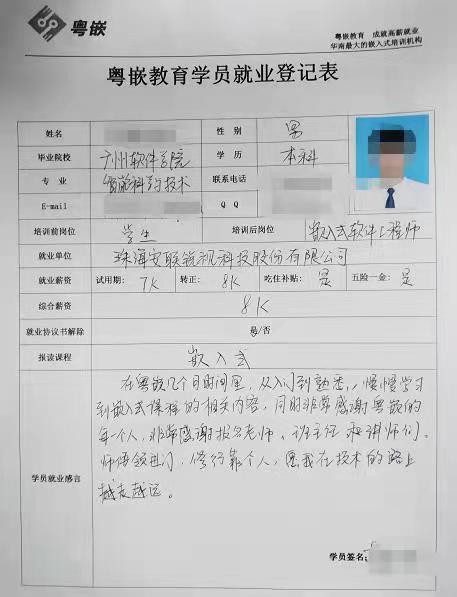 粤嵌
粤嵌教育 成就高薪就业
华南最大的嵌入式培训机构
粤嵌教育学员就业登记表
姓名 性 别 男
毕业院校 广州软件学院 学 历 本科
专 业 智能科学与技术 联系电话
E-mail Q Q
培训前岗位 学生 培训后岗位 嵌入式软件工程师
就业单位 珠海安联锐视科技股份有限公司
就业薪资 试用期: 7K 转正: 8K 吃住补贴: 是 五险一金: 是
综合薪资 8K
就业协议书解除 是/否
报读课程 嵌入式
在粤嵌几个月时间里,从入门到熟悉,慢慢学习
到嵌入式课程的相关内容,同时非常感谢粤嵌的
每一个人,非常感谢报名老师、班主任和讲师们。
师傅领进门,修行靠个人,愿我在技术的路上
越走越远。
学员就业感言
学员签名: